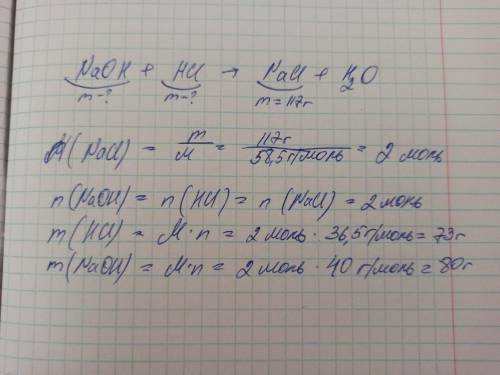 NaOH + HCl → NaCl + H₂O
m-? m-? m=117г
n(NaCl) = m/M = 117г/58,5г/моль = 2 моль
n(NaOH) = n(HCl) = n(NaCl) = 2 моль
m(HCl) = M·n = 2 моль · 36,5 г/моль = 73г
m(NaOH) = M·n = 2 моль · 40 г/моль = 80г